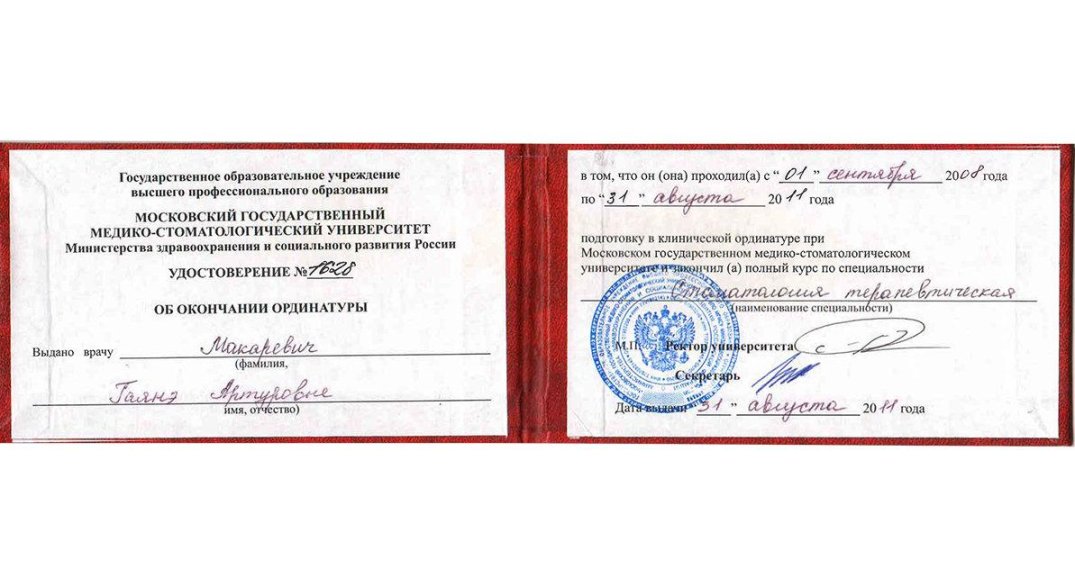 Государственное образовательное учреждение
высшего профессионального образования
МОСКОВСКИЙ ГОСУДАРСТВЕННЫЙ
МЕДИКО-СТОМАТОЛОГИЧЕСКИЙ УНИВЕРСИТЕТ
Министерства здравоохранения и социального развития России
УДОСТОВЕРЕНИЕ №1628
ОБ ОКОНЧАНИИ ОРДИНАТУРЫ
Выдано врачу Макаревич
(фамилия,
Гаянэ Артуровне
имя, отчество)
в том, что он (она) проходил(а) с “01” сентября 2008 года
по “31” августа 2011 года
подготовку в клинической ординатуре при
Московском государственном медико-стоматологическом
университете и закончил (а) полный курс по специальности
Стоматология терапевтическая
(наименование специальности)
М.П. Ректор университета
Секретарь
Дата выдачи 31” августа 2011 года